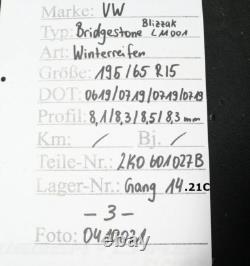 Marke: VW
Blizzak
Typ: Bridgestone LM001
Art: Winterreifen
Größe: 195/65 R15
DOT: 0619/0719/0719/0719
Profil: 8,1/8,3/8,5/8,3 mm
Km: / Bj.: /
Teile-Nr.: 2K0 601027B
Lager-Nr.: Gang 14.21C
- 3 -
Foto: